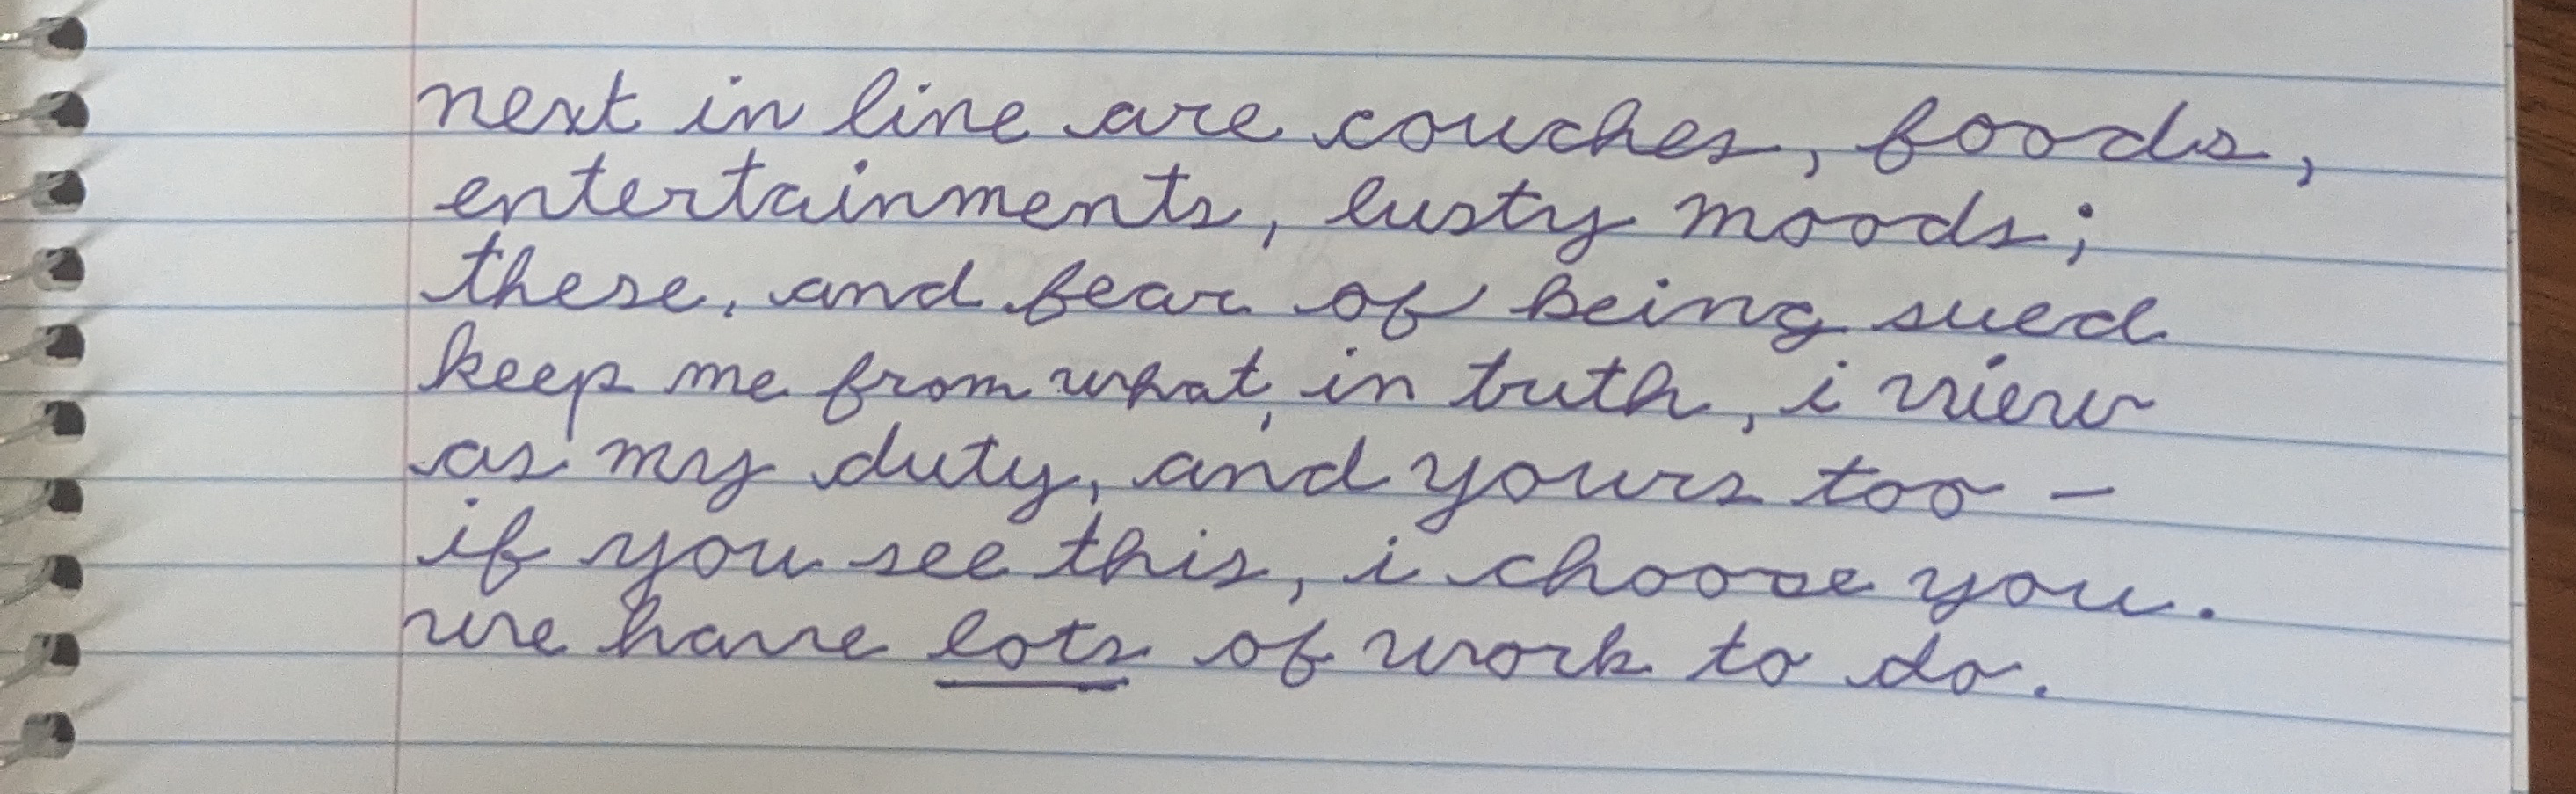 next in line are couches, foods,
entertainments, lusty moods;
these, and fear of being sued
keep me from what, in truth, i view
as my duty, and yours too -
if you see this, i choose you.
we have lots of work to do.